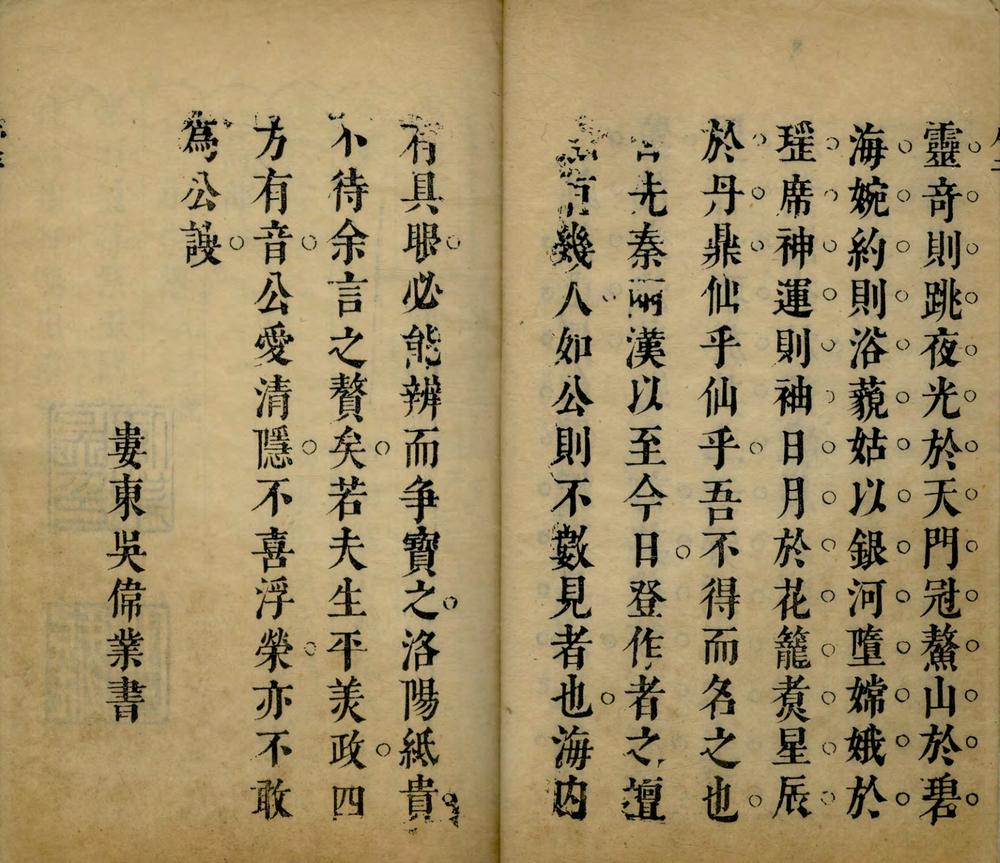 靈奇則跳夜光於天門冠鰲山於碧
海婉約則浴藐姑以銀河墮嫦娥於
瑤席神運則袖日月於花籠煑星辰
於丹鼎仙乎仙乎吾不得而名之也
先秦兩漢以至今日登作者之壇
幾人如公則不數見者也海内
有具眼必能辨而争寶之洛陽紙貴
不待余言之贅矣若夫生平美政四
方有音公愛清隱不喜浮榮亦不敢
爲公謏
婁東吳偉業書